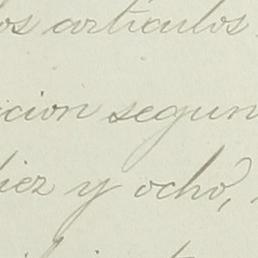 os articulos
cion segun
diez y ocho,